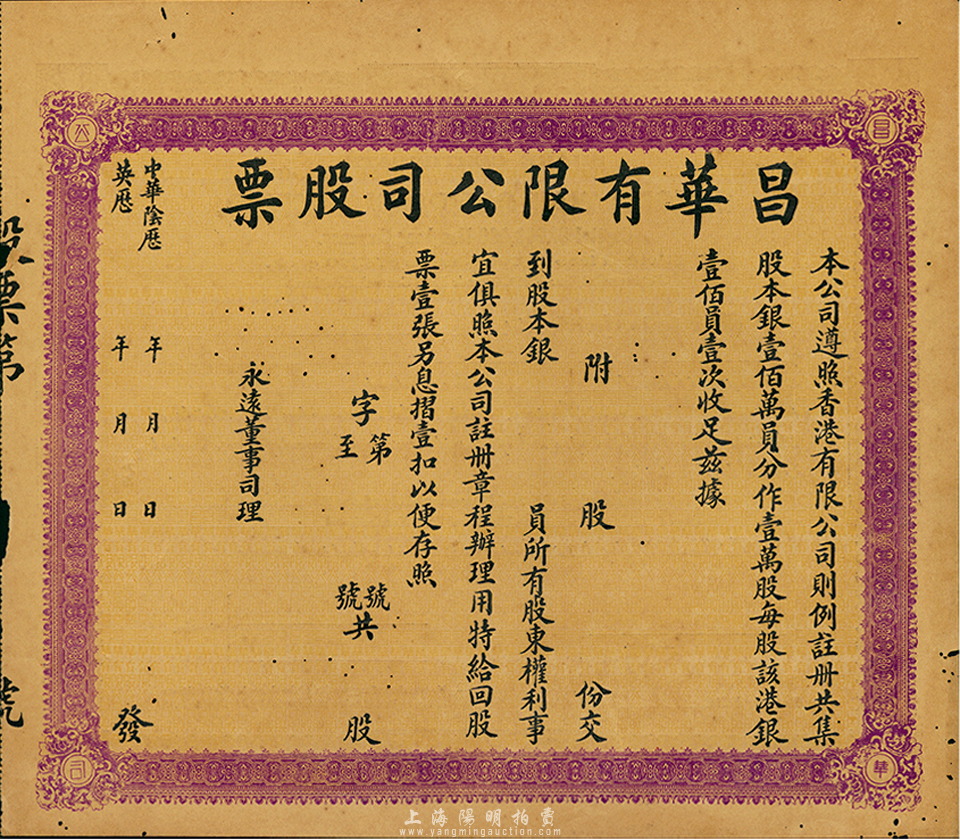 昌華有限公司股票
本公司遵照香港有限公司則例註册共集
股本銀壹佰萬員分作壹萬股每股該港銀
壹佰員壹次收足兹據
附 股 份交
到股本銀 員所有股東權利事
宜俱照本公司註册章程辦理用特給回股
票壹張另息摺壹扣以便存照
字 第 號
至 號 共 股
永遠董事司理
中華陰歷 年 月 日
英歷 年 月 日 發
股票第 號
昌
華
公
司
上海陽明拍賣
www.yangmingauction.com